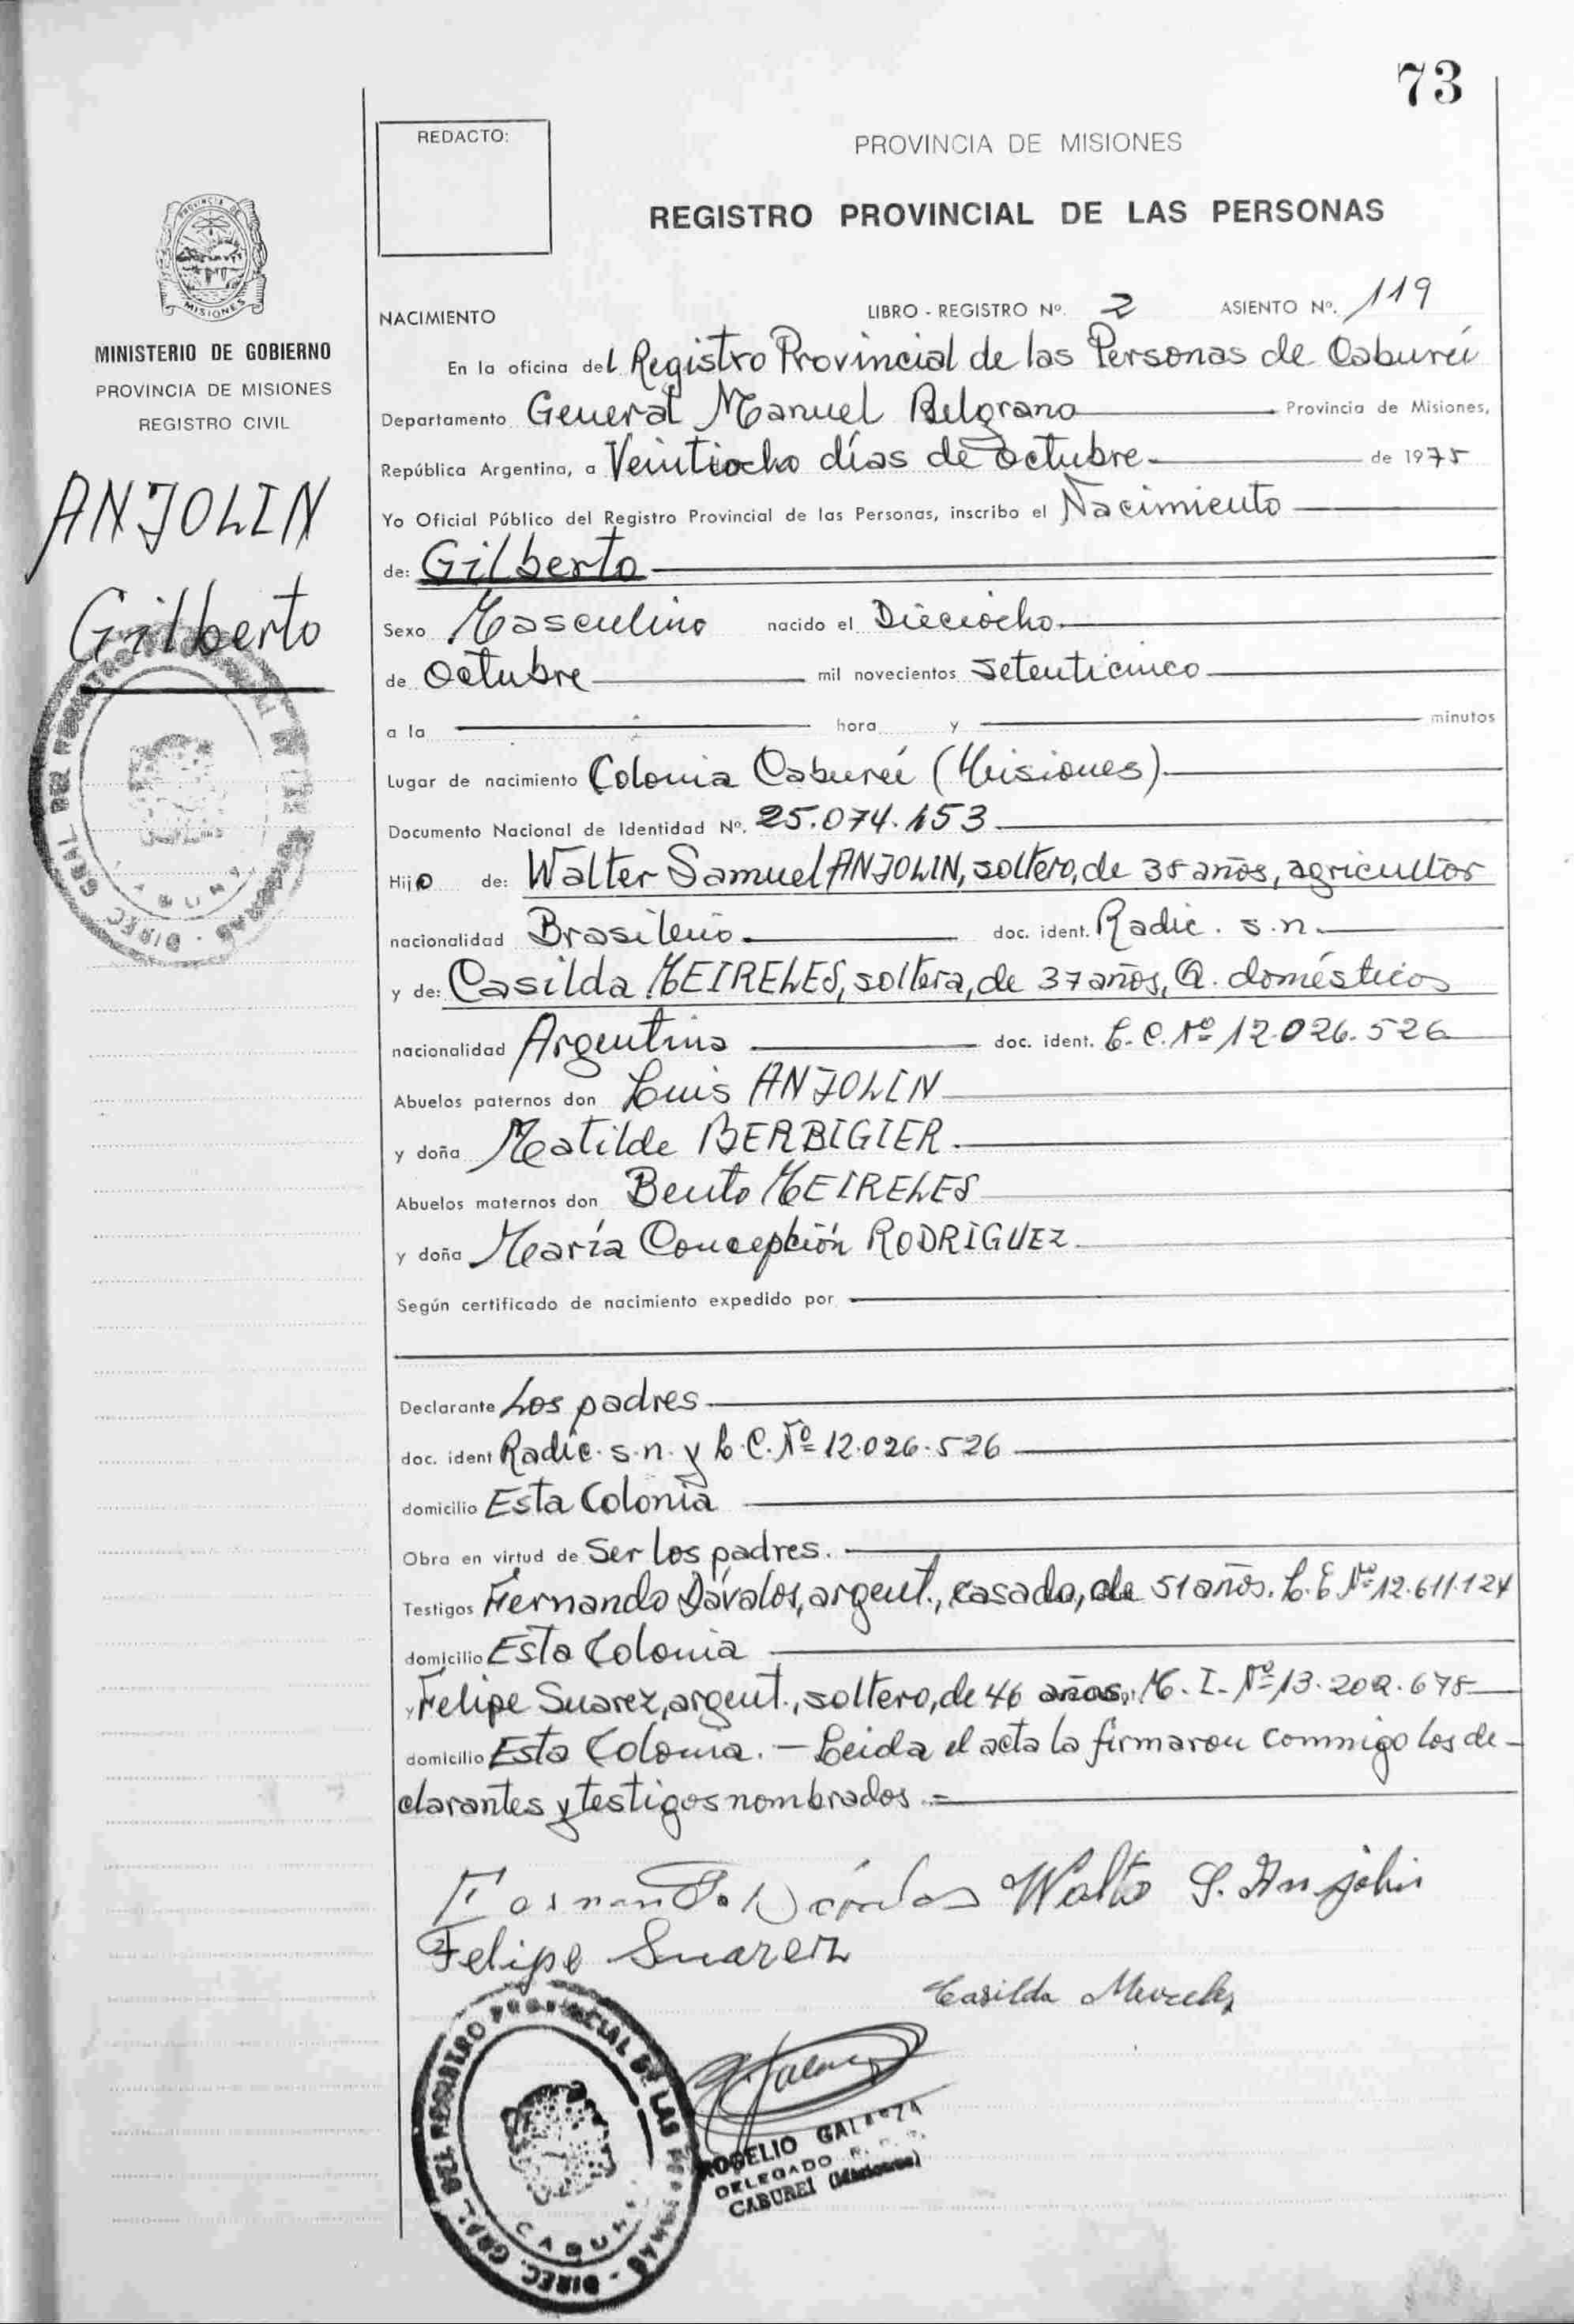 73
REDACTO:
PROVINCIA DE MISIONES
REGISTRO PROVINCIAL DE LAS PERSONAS
MISIONES
MINISTERIO DE GOBIERNO
PROVINCIA DE MISIONES
REGISTRO CIVIL
ANJOLIN
Gilberto
NACIMIENTO LIBRO - REGISTRO Nº. 2 ASIENTO Nº. 119
En la oficina del Registro Provincial de las Personas de Caburei
Departamento General Manuel Belgrano Provincia de Misiones,
República Argentina, a Veintiocho días de octubre de 1975
Yo Oficial Público del Registro Provincial de las Personas, inscribo el Nacimiento
de: Gilberto
Sexo Masculino nacido el Dieciocho
de Octubre mil novecientos setenticinco
a la hora y minutos
Lugar de nacimiento Colonia Caburei (Misiones)
Documento Nacional de Identidad Nº. 25.074.153
Hijo de: Walter Samuel ANJOLIN, soltero, de 38 años, agricultor
nacionalidad Brasileño doc. ident. Radic. s.n.
y de: Casilda MEIRELES, soltera, de 37 años, Q. domésticos
nacionalidad Argentina doc. ident. L.C. Nº 12.026.526
Abuelos paternos don Luis ANJOLIN
y doña Matilde BERBIGIER
Abuelos maternos don Bento MEIRELES
y doña María Concepción RODRIGUEZ
Según certificado de nacimiento expedido por
Declarante Los padres
doc. ident Radic. s.n. y L.C. Nº 12.026.526
domicilio Esta Colonia
Obra en virtud de Ser los padres.
Testigos Fernando Dávalos, argent., casado, de 51 años. L.E Nº 12.611.124
domicilio Esta Colonia
y Felipe Suarez, argent., soltero, de 46 años, M.I. Nº 13.202.678
domicilio Esta Colonia. - Leida el acta la firmaron conmigo los de-
clarantes y testigos nombrados.=
Walter S. Anjolin
Felipe Suarez
Casilda Meireles
DIREC. GRAL. DEL REGISTRO PROVINCIAL DE LAS PERSONAS
ROGELIO GALARZA
DELEGADO
CABUREI (Misiones)